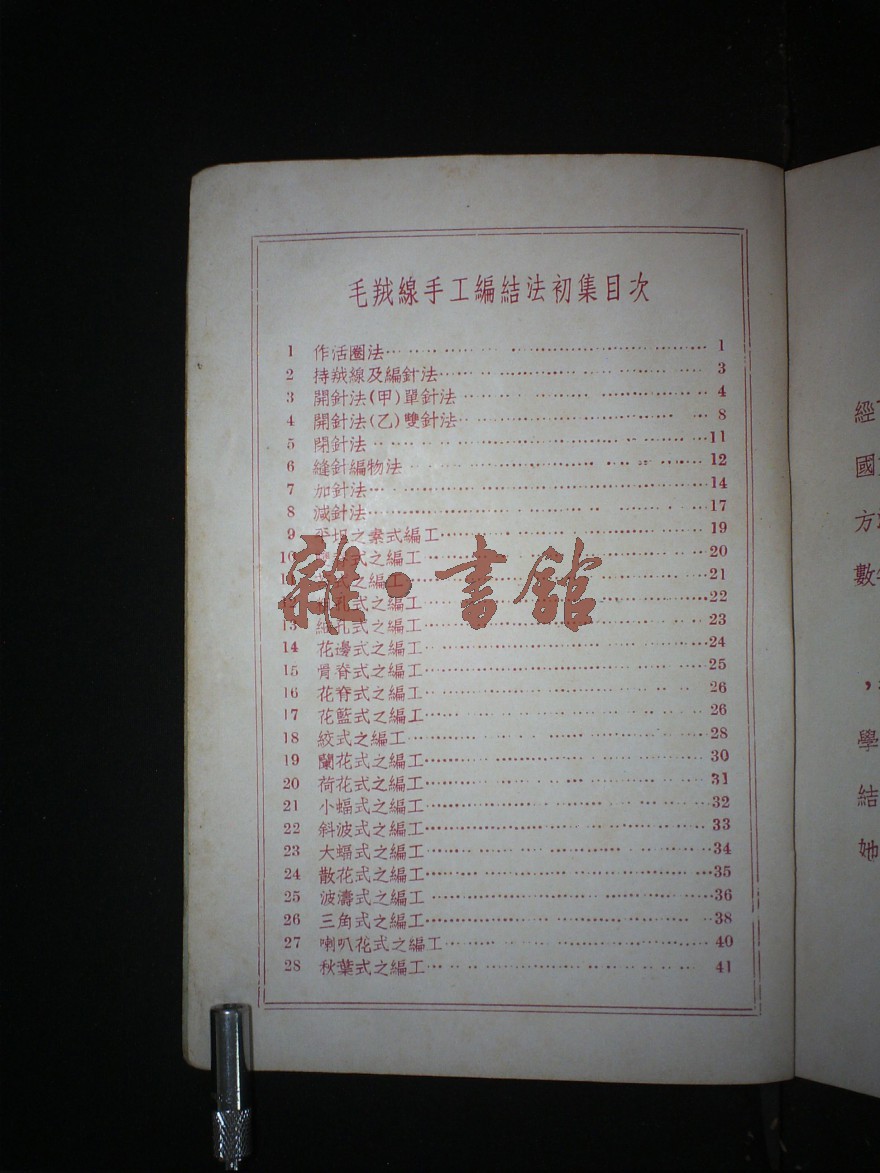 毛羢線手工編結法初集目次
1 作活圈法 1
2 持羢線及編針法 3
3 開針法(甲)單針法 4
4 開針法(乙)雙針法 8
5 閉針法 11
6 縫針編物法 12
7 加針法 14
8 減針法 17
9 平坦之素式編工 19
10 式之編工 20
式之編工 21
孔式之編工 22
13 孔式之編工 23
14 花邊式之編工 24
15 骨脊式之編工 25
16 花脊式之編工 26
17 花藍式之編工 26
18 絞式之編工 28
19 蘭花式之編工 30
20 荷花式之編工 31
21 小蝠式之編工 32
22 斜波式之編工 33
23 大蝠式之編工 34
24 散花式之編工 35
25 波濤式之編工 36
26 三角式之編工 38
27 喇叭花式之編工 40
28 秋葉式之編工 41
雜·書館
經
國
方
數
學
結
她